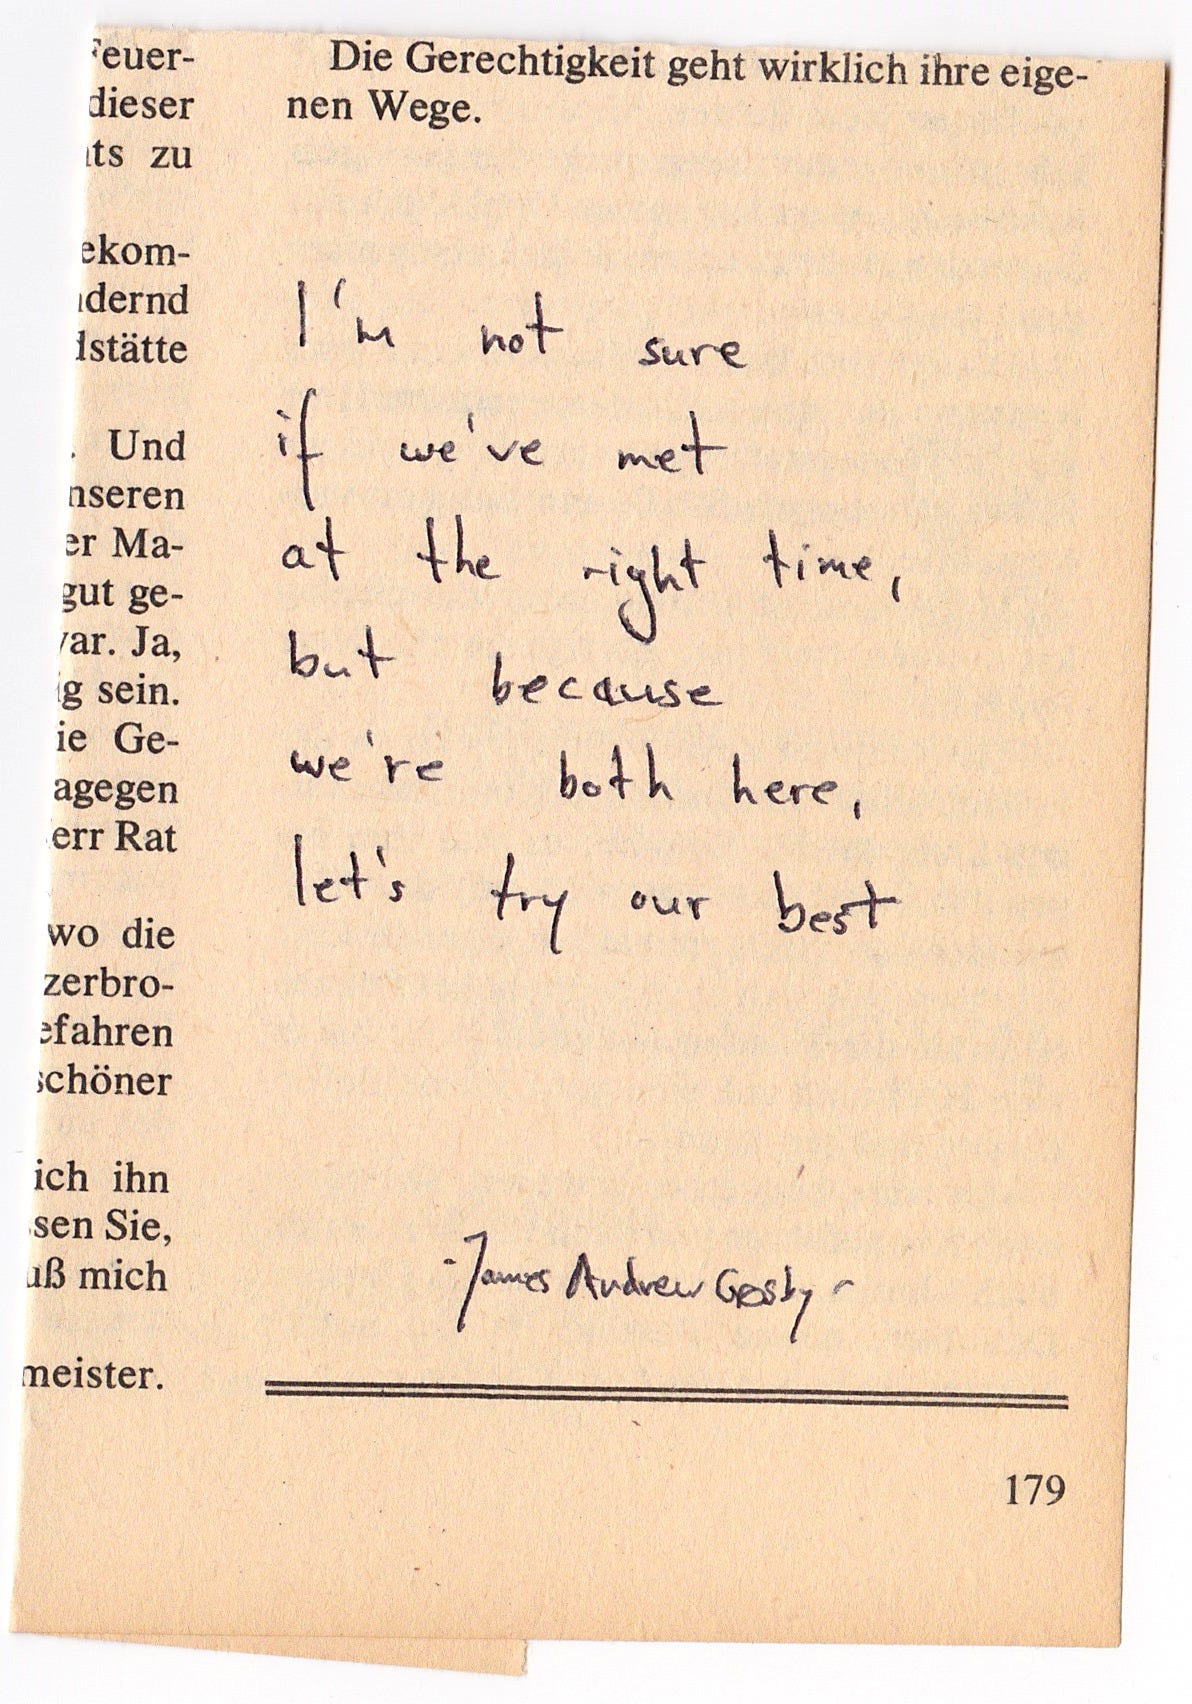 Feuer-
dieser
zu
ekom-
dernd
dstätte
. Und
nseren
er Ma-
gut ge-
var. Ja,
ig sein.
ie Ge-
agegen
err Rat
wo die
zerbro-
efahren
schöner
ich ihn
ssen Sie,
uß mich
meister.
Die Gerechtigkeit geht wirklich ihre eige-
nen Wege.
I'm not sure
if we've met
at the right time,
but because
we're both here,
let's try our best
-James Andrew Crosby-
179